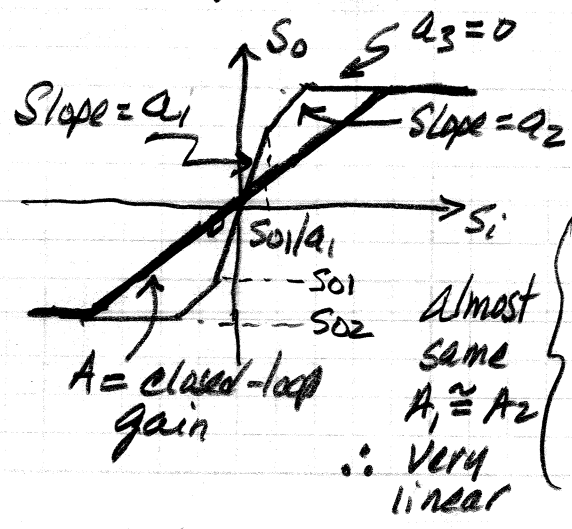 S₀
a₃=0
Slope=a₁
Slope=a₂
Sᵢ
S₀₁/a₁
-S₀₁
-S₀₂
A=closed-loop
gain
almost
same
A₁≅A₂
∴ very
linear